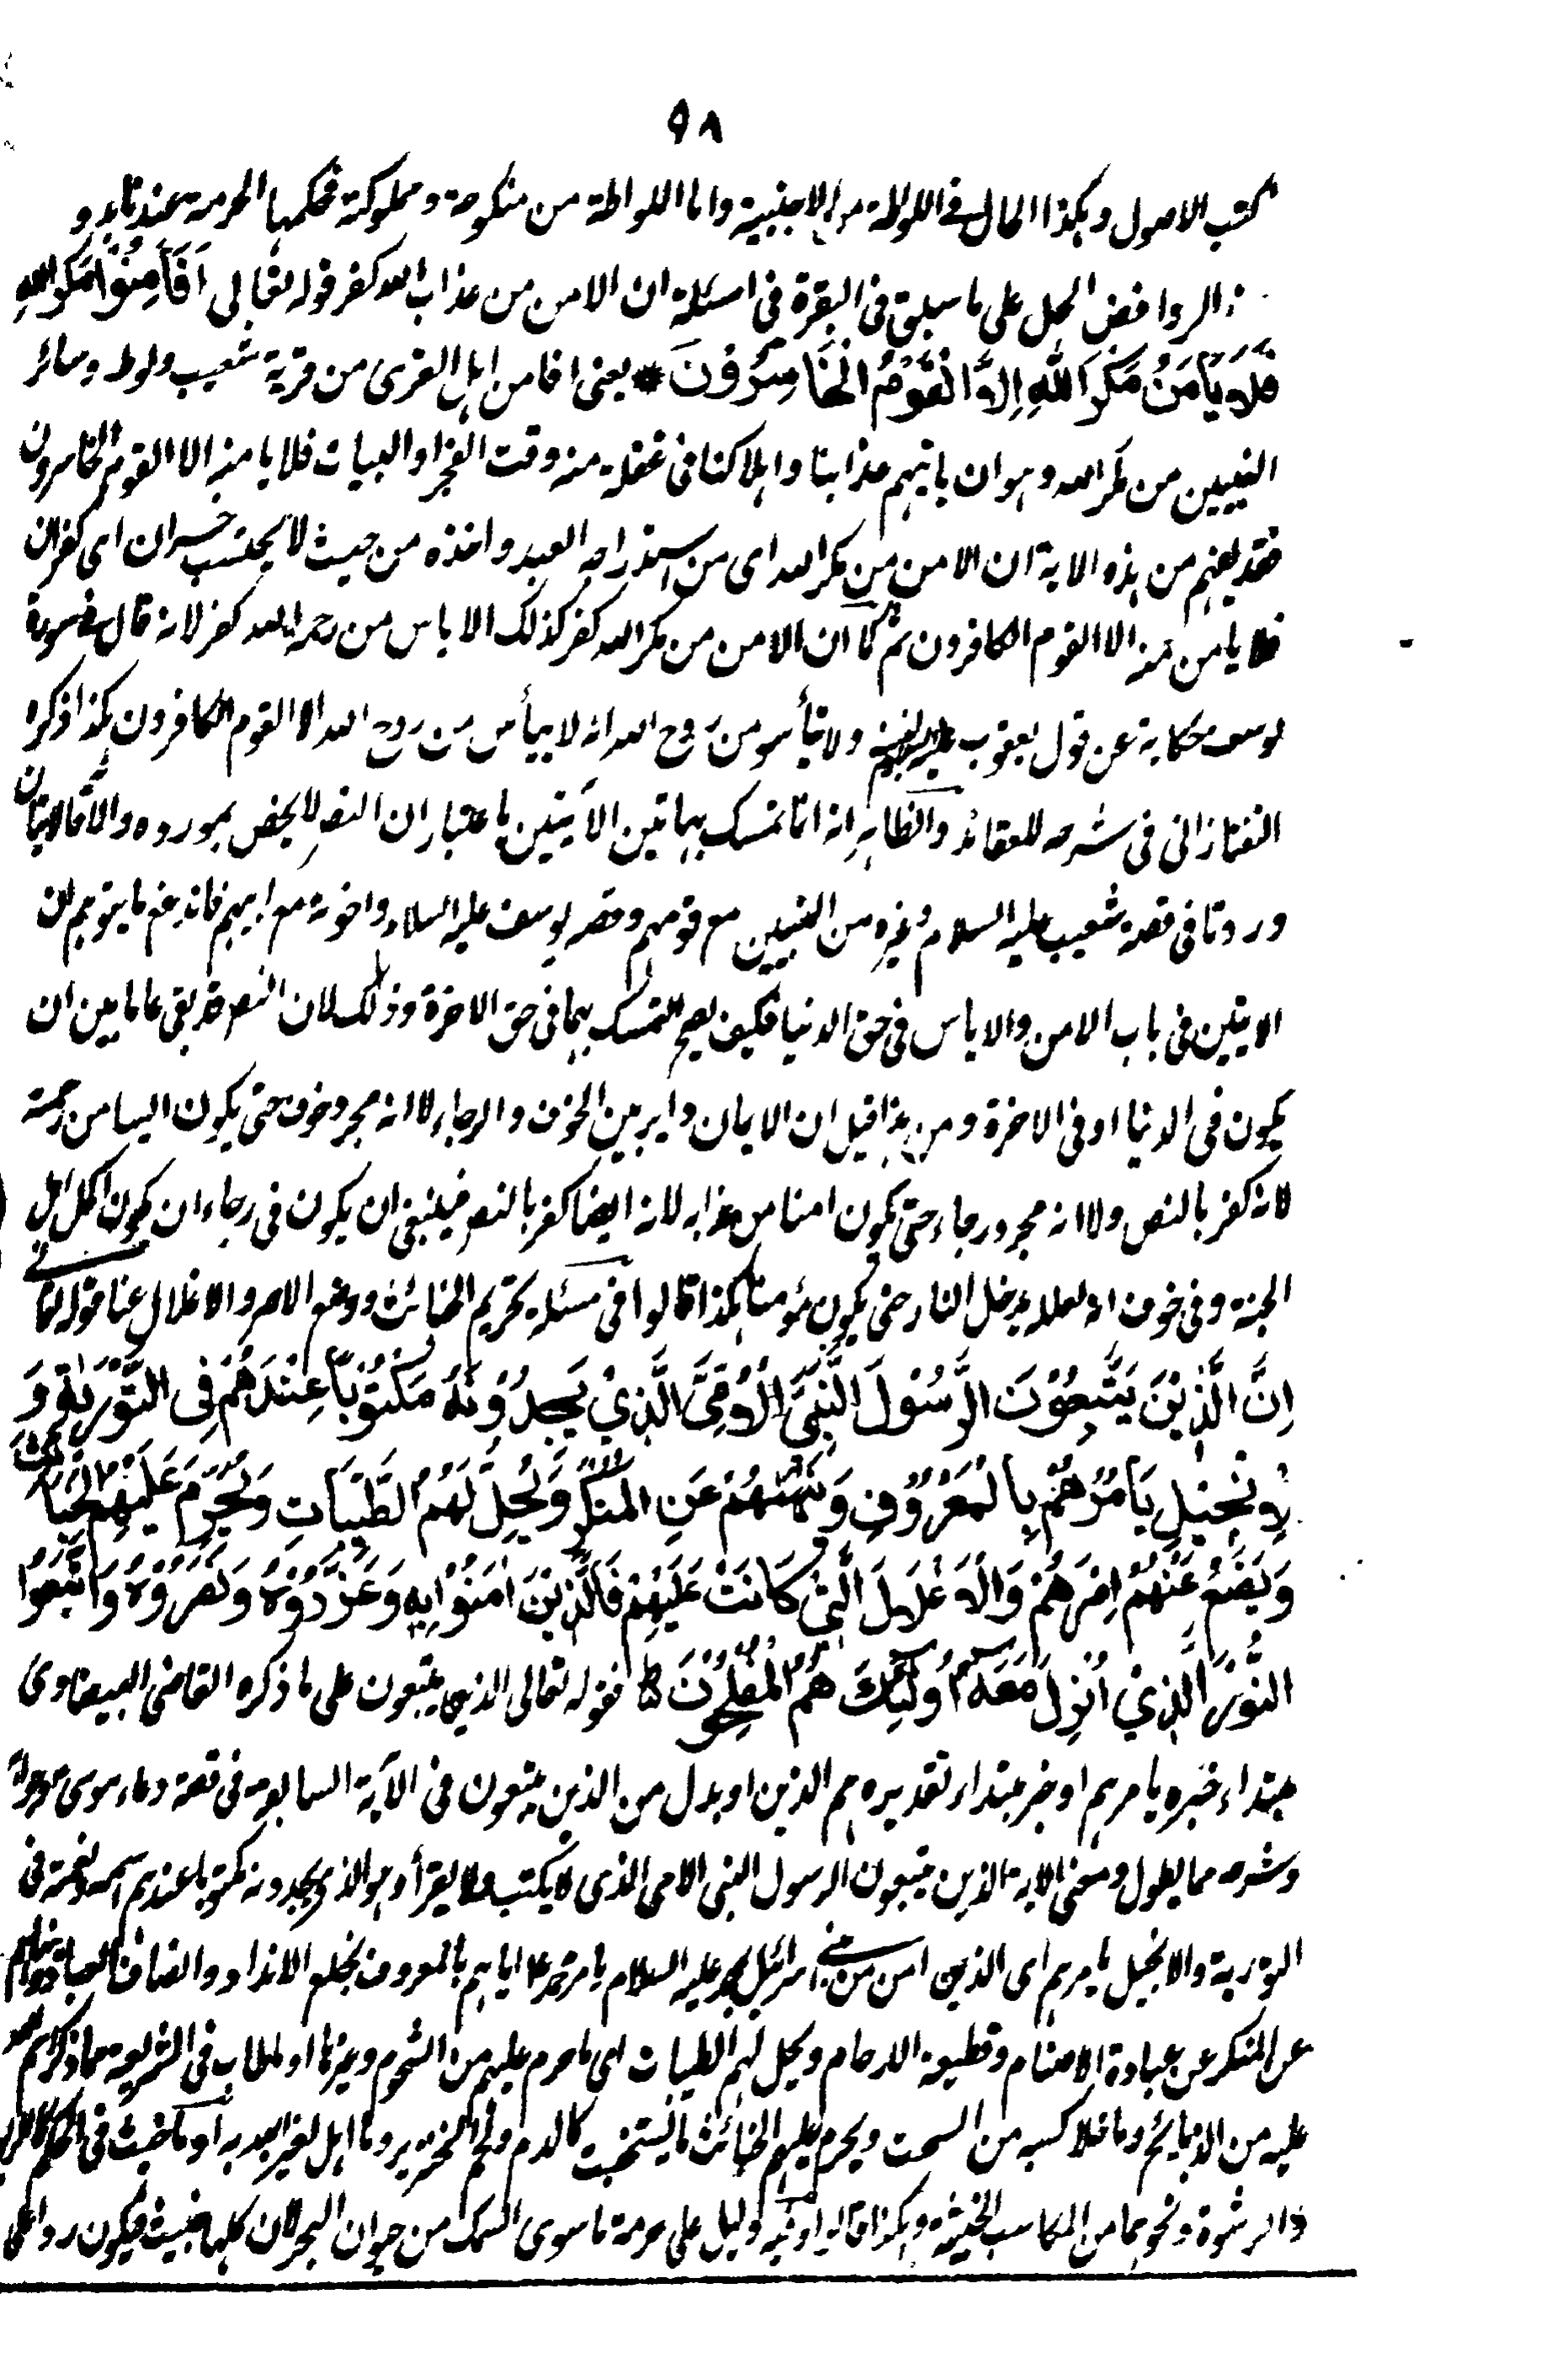 ٩٨
كتب الاصول وهكذا الحال في اللواطة من الاجنبية واما اللواطة من منكوحة ومملوكته فحكمها الحرمة عندنا و
الروافض الحل على ما سبق في البقرة في مسئلة ان الامن من عذاب الله كفر قوله تعالى اَفَاَمِنُوْا مَكْرَ اللهِ
فَلَا يَأْمَنُ مَكْرَ اللهِ اِلَّا الْقَوْمُ الْخَاسِرُوْنَ * يعني افامن اهل القرى من قرية شعيب ولوط وسائر
النبيين من مكر الله وهو ان ياتيهم عذابنا واهلاكنا في غفلة منه وقت الفجر او البيات فلا يامنه الا القوم الخاسرون
فقد فهم من هذه الاية ان الامن من مكر الله اى من استدراجه العبد واخذه من حيث لا يحتسب خسران اى كفران
فلا يامن منه الا القوم الكافرون ثم كما ان الامن من مكر الله كفر كذلك الاياس من رحمة الله كفر لانه قال في سورة
يوسف حكاية عن قول يعقوب لبنيه ولا تيأسو من روح الله انه لا ييأس من روح الله الا القوم الكافرون هكذا ذكره
التفتازانى فى شرحه للعقائد والظاهر انه انما تمسك بهاتين الآيتين باعتبار ان النص لا يختص بمورده والا فالايتان
وردتا فى قصة شعيب عليه السلام وغيره من النبيين مع قومهم وقصة يوسف عليه السلام واخوته مع ابيهم فاندفع ما يتوهم ان
الايتين فى باب الامن والاياس فى حق الدنيا فكيف يصح التمسك بهما فى حق الاخرة وذلك لان النص قد بقى عاما بين ان
يكون فى الدنيا او فى الاخرة ومن هذا قيل ان الايمان داير بين الخوف والرجاء لا انه مجرد خوف حتى يكون اليسا من رحمته
لانه كفر بالنص ولا انه مجرد رجاء حتى يكون امنا من عذابه لانه ايضا كفر بالنص فينبغى ان يكون فى رجاء ان يكون اكل اهل
الجنة وفى خوف انه لعله يدخل النار حتى يكون مؤمنا هكذا قالوا فى مسئلة تحريم الخبائث ووضع الاصر والاغلال عنا قوله تعالى
اِنَّ الَّذِيْنَ يَتَّبِعُوْنَ الرَّسُوْلَ النَّبِىَّ الْاُمِّىَّ الَّذِيْ يَجِدُوْنَهُ مَكْتُوْبًا عِنْدَهُمْ فِى التَّوْرٰىةِ وَ
الْاِنْجِيْلِ يَأْمُرُهُمْ بِالْمَعْرُوْفِ وَيَنْهٰىهُمْ عَنِ الْمُنْكَرِ وَيُحِلُّ لَهُمُ الطَّيِّبَاتِ وَيُحَرِّمُ عَلَيْهِمُ الْخَبَائِثَ
وَيَضَعُ عَنْهُمْ اِصْرَهُمْ وَالْاَغْلَالَ الَّتِىْ كَانَتْ عَلَيْهِمْ فَالَّذِيْنَ اٰمَنُوْا بِهِ وَعَزَّرُوْهُ وَنَصَرُوْهُ وَاتَّبَعُوا
النُّوْرَ الَّذِيْ اُنْزِلَ مَعَهُ اُولٰئِكَ هُمُ الْمُفْلِحُوْنَ ط فقوله تعالى الذين يتبعون على ما ذكره القاضى البيضاوى
مبتداء خبره يامرهم او خبر مبتداء تقديره هم الذين او بدل من الذين يتقون فى الآية السابقة فى قصة دعاء موسى
وشرحه مما يطول ومعنى الاية الذين يتبعون الرسول النبى الامى الذى لا يكتب ولا يقرأ وهو الذى يجدونه مكتوبا عندهم اسمه ونعته فى
التورية والانجيل يامرهم اى الذين امن من بنى اسرائيل بمحمد عليه السلام يامر محمد اياهم بالمعروف بخلع الانداد وانصاف العباد وينهاهم
عن المنكر عن عبادة الاصنام وقطيعة الارحام ويحل لهم الطيبات اى ما حرم عليهم من الشحوم وغيرها او ما طاب فى الشريعة مما ذكر اسم الله
عليه من الذبائح وما خلا كسبه من السحت ويحرم عليهم الخبائث ما يستخبث كالدم ولحم الخنزير وما اهل لغير الله به او ما خبث فى الحكم كالربا
والرشوة ونحوهما من المكاسب الخبيثة هكذا قالوا وفيه دليل على حرمة ما سوى السمك من حيوان البحر لان كلها خبيث فيكون ردا على